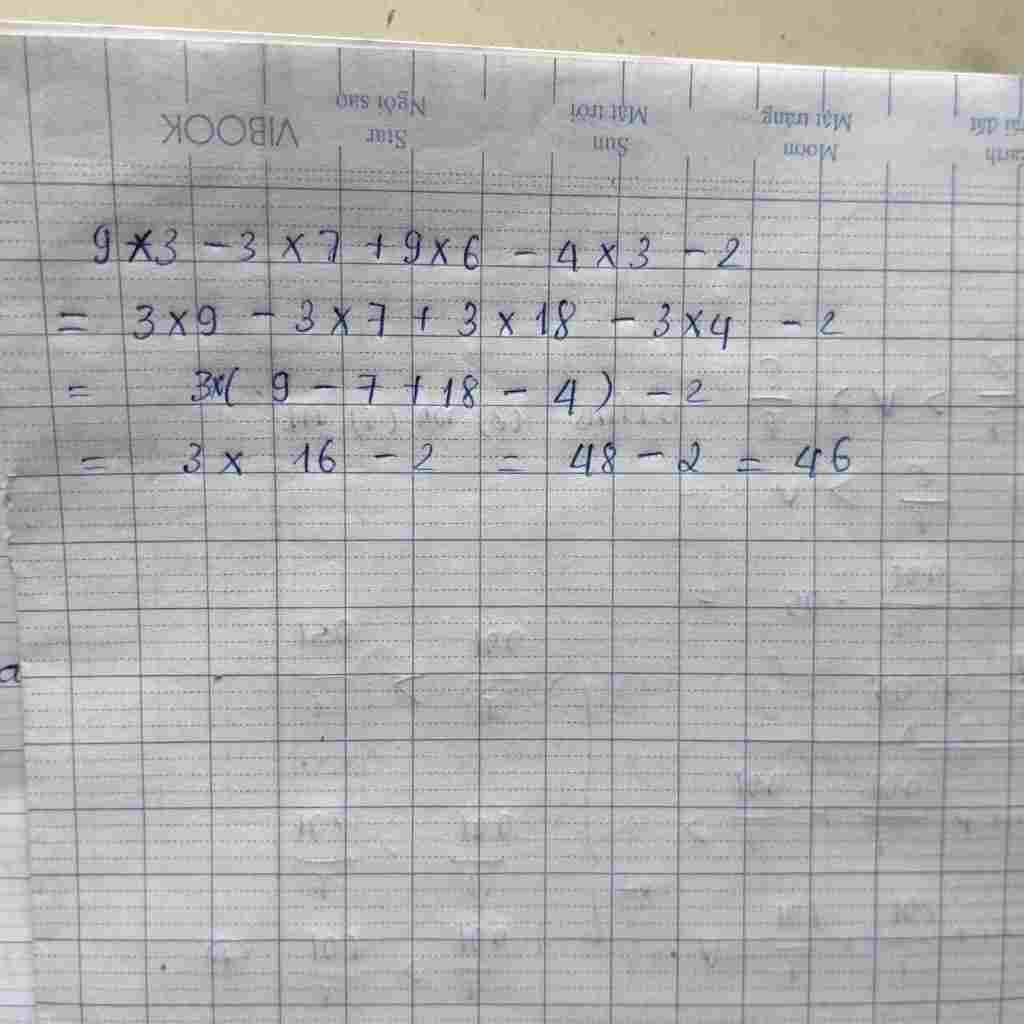 VIBOOK Star Ngôi sao Sun Mặt trời Moon Mặt trăng
9 × 3 - 3 × 7 + 9 × 6 - 4 × 3 - 2
= 3 × 9 - 3 × 7 + 3 × 18 - 3 × 4 - 2
= 3 × ( 9 - 7 + 18 - 4 ) - 2
= 3 × 16 - 2 = 48 - 2 = 46